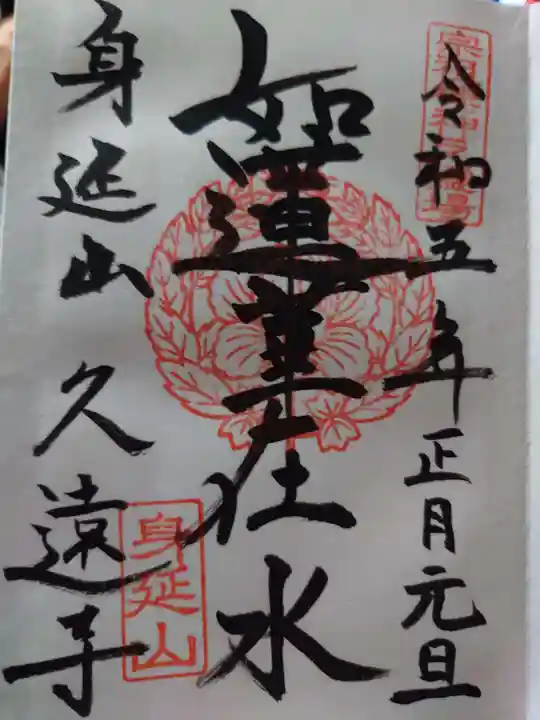 令和五年正月元旦
如蓮華在水
身延山久遠寺
身延山